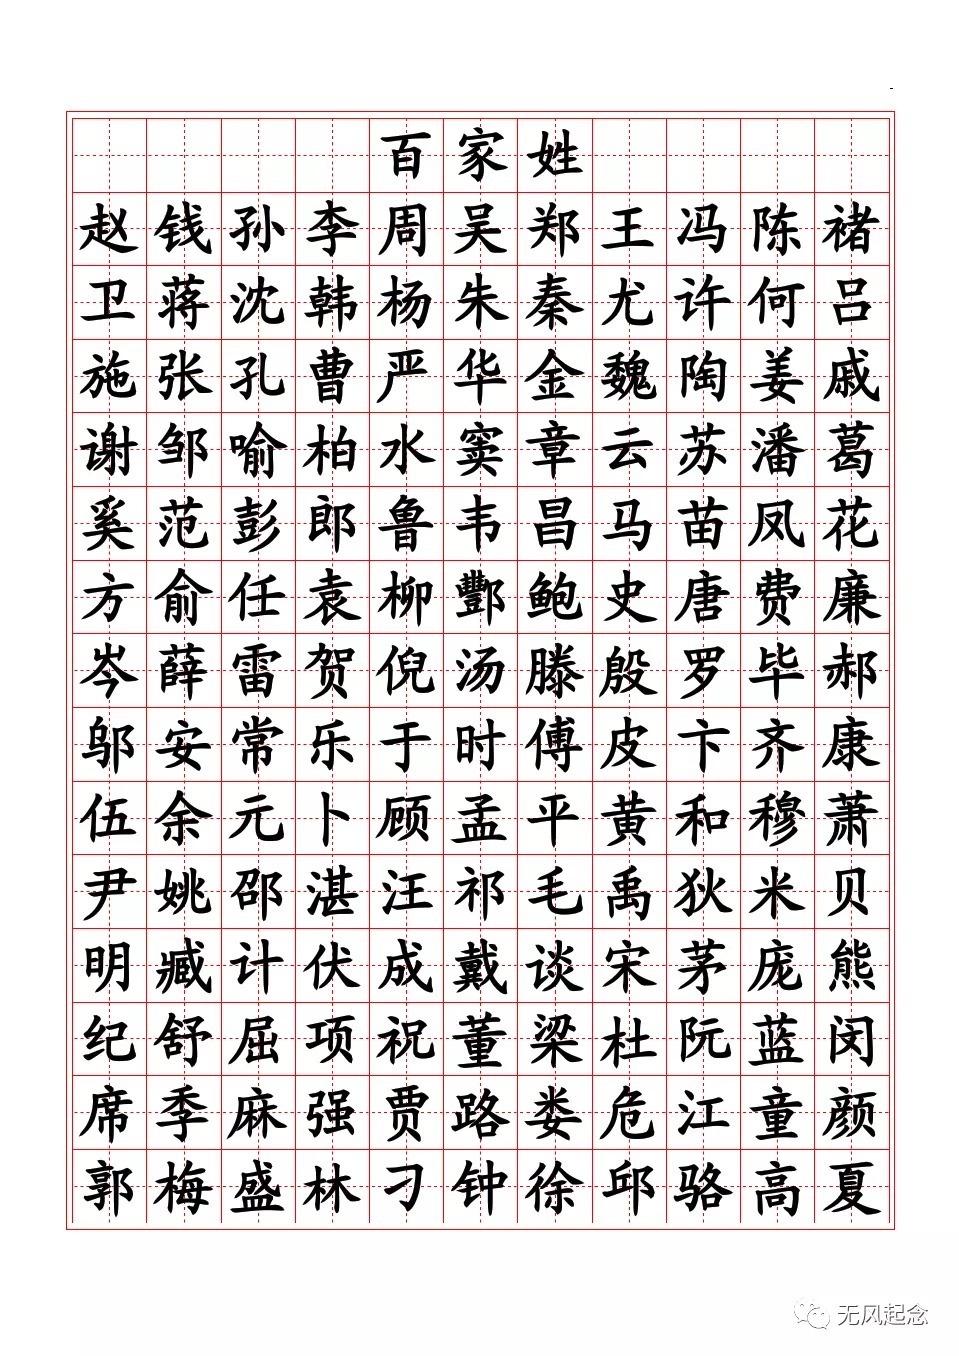 百家姓
赵钱孙李周吴郑王冯陈褚
卫蒋沈韩杨朱秦尤许何吕
施张孔曹严华金魏陶姜戚
谢邹喻柏水窦章云苏潘葛
奚范彭郎鲁韦昌马苗凤花
方俞任袁柳酆鲍史唐费廉
岑薛雷贺倪汤滕殷罗毕郝
邬安常乐于时傅皮卞齐康
伍余元卜顾孟平黄和穆萧
尹姚邵湛汪祁毛禹狄米贝
明臧计伏成戴谈宋茅庞熊
纪舒屈项祝董梁杜阮蓝闵
席季麻强贾路娄危江童颜
郭梅盛林刁钟徐邱骆高夏
无风起念